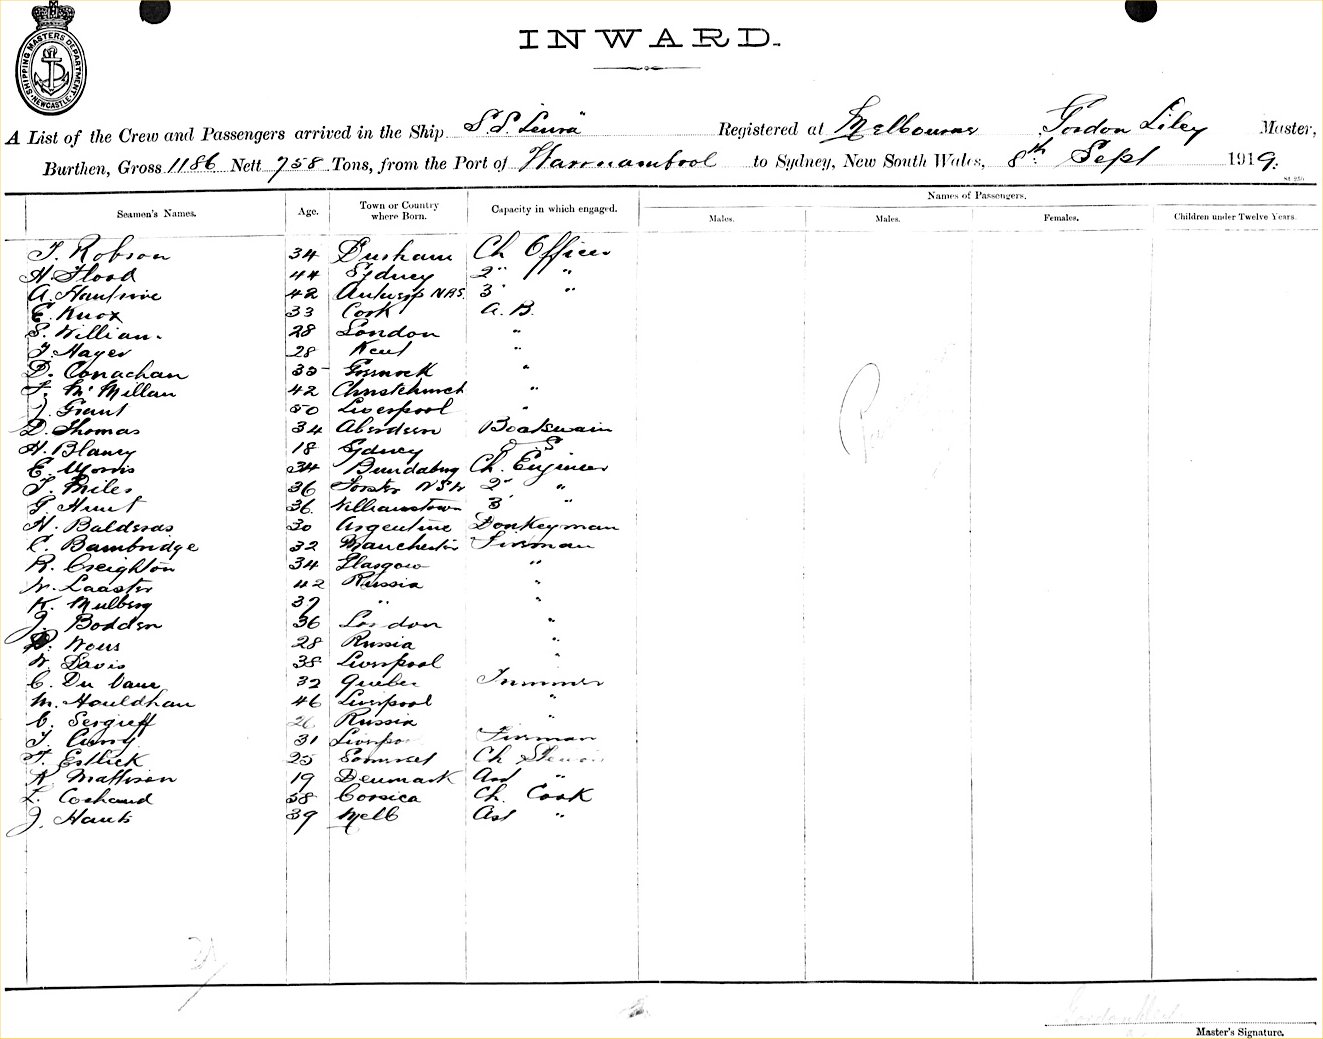 SHIPPING MASTERS DEPARTMENT NEWCASTLE
INWARD.
A List of the Crew and Passengers arrived in the Ship S.S. Leura Registered at Melbourne Gordon Liley Master,
Burthen, Gross 1186 Nett 758 Tons, from the Port of Warrnambool to Sydney, New South Wales, 8th Sept 1919.
Seamen's Names. Age. Town or Country where Born. Capacity in which engaged. Names of Passengers.
Males. Males. Females. Children under Twelve Years.
T. Robson 34 Durham Ch Officer
H. Flood 44 Sydney 2" "
A. 42 Antwerp 3 "
E. Knox 33 Cork A.B.
S. William. 28 London "
T. Mayer 28 Kent "
D. Conachan 35 "
F. McMillan 42 Christchurch "
J. Grant 50 Liverpool "
D. Thomas 34 Aberdeen Boatswain
H. Blaney 18 Sydney O S
E. Morris 34 Bundaberg Ch. Engineer
T. Miles 36 Forster NSW 2" "
G. Hunt 36. Williamstown 3 "
H. Balderas 30 Argentine Donkeyman
C. Bambridge 32 Manchester Fireman
R. Creighton 34 Glasgow "
W. Laaster 42 Russia "
K. Mulberg 37 " "
J. Bodden 36 London "
Nous 28 Russia "
W. Davis 38 Liverpool "
C. Du Vaur 32 Quebec Trimmer
M. Houldhan 46 Liverpool "
C. Sergieff 26 Russia "
T. Curry 31 Liverpo Fireman
F. Estlick 25 Somerset Ch
K. Mattison 19 Denmark Asst "
L. Cochaud 58 Corsica Ch. Cook
J. 39 Melb Ast "
Master's Signature.